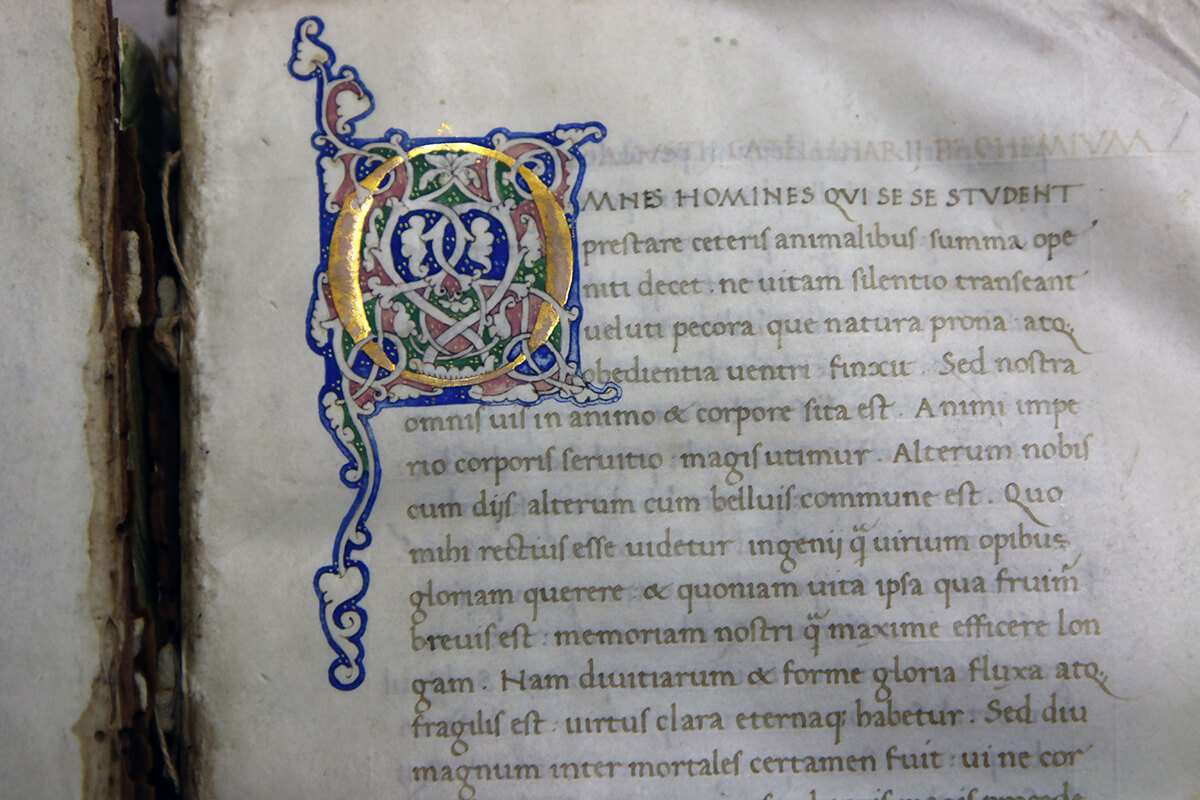 PROHEMIVM
OMNES HOMINES QVI SE SE STVDENT
preſtare ceteriſ animalibuſ ſumma ope
niti decet : ne uitam ſilentio tranſeant
ueluti pecora que natura prona : atq;
obedientia uentri finxit . Sed noſtra
omniſ uiſ in animo & corpore ſita eſt . Animi impe
rio corporiſ ſeruitio : magiſ utimur . Alterum nobiſ
cum dijſ alterum cum belluiſ commune eſt . Quo
mihi rectiuſ eſſe uidetur ingenij q̃ uirium opibus
gloriam querere : & quoniam uita ipſa qua fruim̃
breuiſ eſt : memoriam noſtri q̃ maxime efficere lon
gam . Nam diuitiarum & forme gloria fluxa atq;
fragiliſ eſt : uirtuſ clara eternaq; habetur . Sed diu
magnum inter mortaleſ certamen fuit : ui ne cor